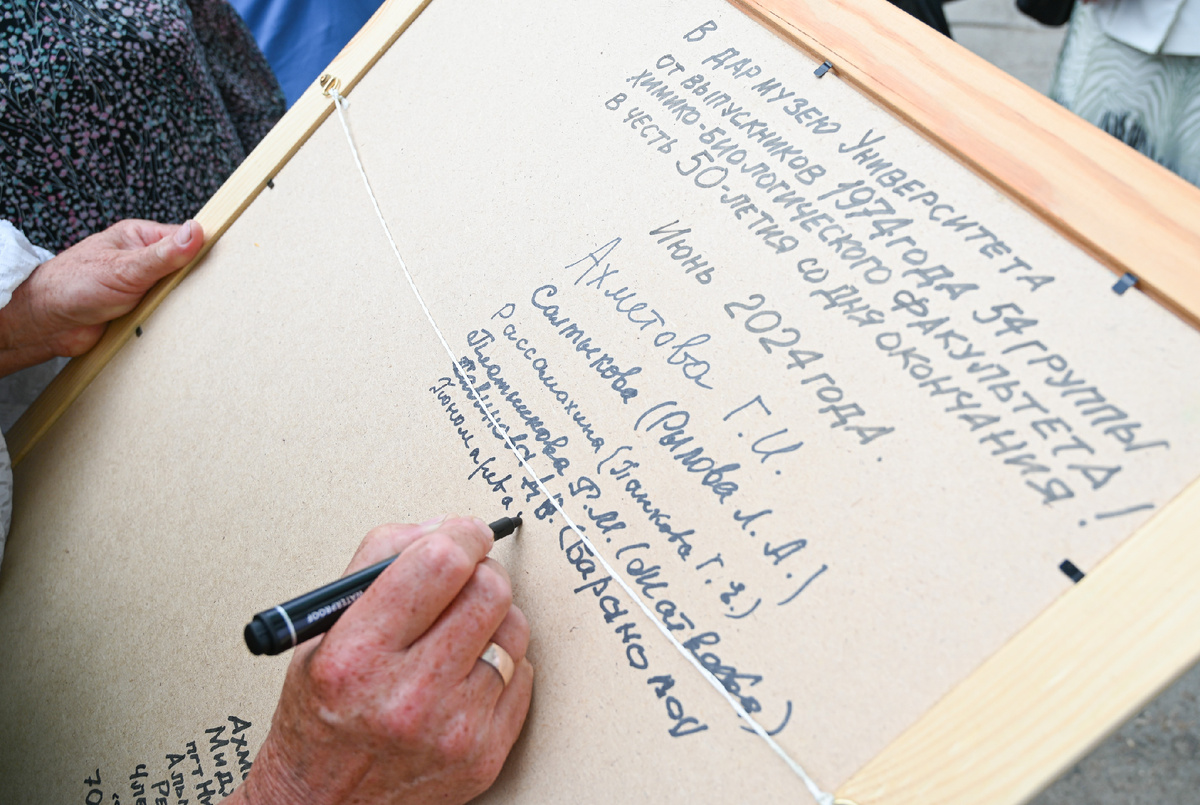 В ДАР МУЗЕЮ УНИВЕРСИТЕТА
ОТ ВЫПУСКНИКОВ 1974 ГОДА 54 ГРУППЫ
ХИМИКО-БИОЛОГИЧЕСКОГО ФАКУЛЬТЕТА
В ЧЕСТЬ 50-ЛЕТИЯ СО ДНЯ ОКОНЧАНИЯ!
ИЮНЬ 2024 ГОДА.
Ахметова Г.И.
Салтыкова (Рылова Л.А.)
Рассамахина (Панкова Г.
Платникова Р.М. (
WATERPROOF
АХМ
МИД
ПГТ
АЛЬ
РЕ
ЧЛЕ
70